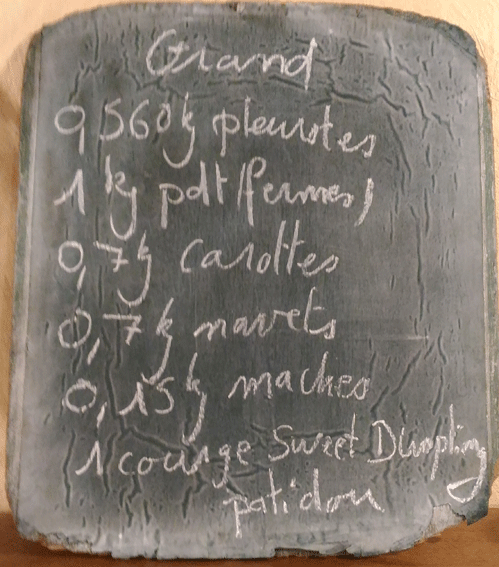 Grand
0,560kg pleurotes
1 kg pdt (fermes)
0,7kg carottes
0,7kg navets
0,15kg maches
1 courge Sweet Dumpling
patidou